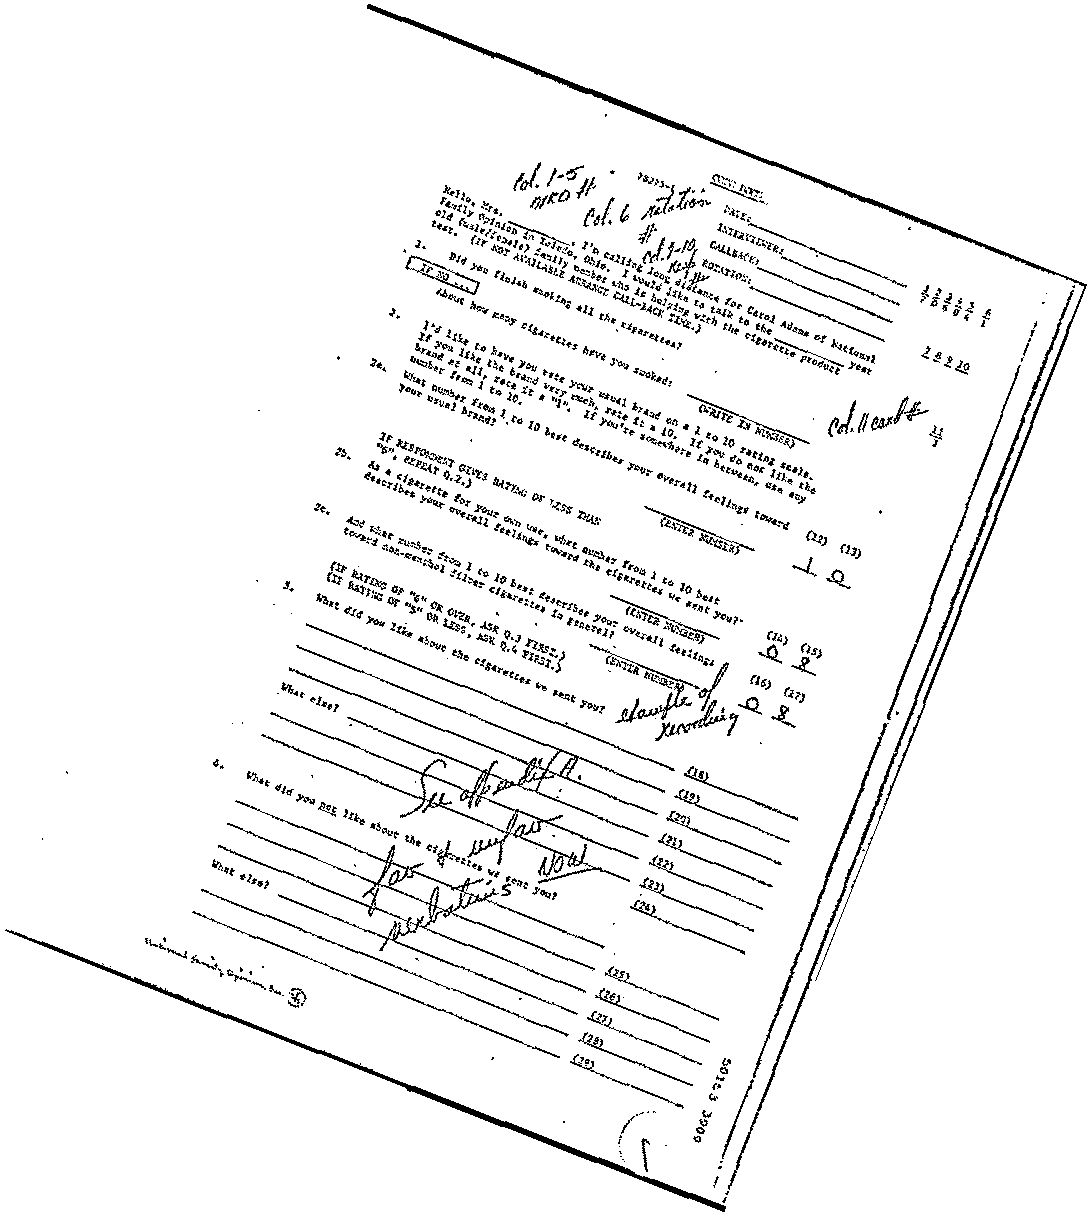 Col. 1-5
MRD #
Col. 6 Rotation
#
Col. 7-10
Resp
#
DATE:
INTERVIEWER:
CALLBACK:
ROTATION:
Hello, Mrs. , I'm calling long distance for Carol Adams of National
Family Opinion in Toledo, Ohio. I would like to talk to the year
old (male/female) family member who is helping with the cigarette product
test. (IF NOT AVAILABLE ARRANGE CALL-BACK TIME.)
7 8 9 10
1. Did you finish smoking all the cigarettes?
IF NO ...
About how many cigarettes have you smoked?
(WRITE IN NUMBER)
Col. 11 card #
11
2. I'd like to have you rate your usual brand on a 1 to 10 rating scale.
If you like the brand very much, rate it a 10. If you do not like the
brand at all, rate it a "1". If you're somewhere in between, use any
number from 1 to 10.
2a. What number from 1 to 10 best describes your overall feelings toward
your usual brand?
(ENTER NUMBER)
(12) (13)
1 0
IF RESPONDENT GIVES RATING OF LESS THAN
"5", REPEAT Q.2.)
2b. As a cigarette for your own use, what number from 1 to 10 best
describes your overall feelings toward the cigarettes we sent you?
(ENTER NUMBER)
(14) (15)
0 8
2c. And what number from 1 to 10 best describes your overall feelings
toward non-menthol filter cigarettes in general?
(ENTER NUMBER)
(16) (17)
0 8
(IF RATING OF "6" OR OVER, ASK Q.3 FIRST.)
(IF RATING OF "5" OR LESS, ASK Q.4 FIRST.)
3. What did you like about the cigarettes we sent you?
example of
recording
(18)
(19)
(20)
What else?
(21)
(22)
(23)
(24)
See appendix A.
4. What did you not like about the cigarettes we sent you?
fav or unfav NOW
verbatims
(25)
(26)
What else?
(27)
(28)
(29)
National Family Opinion, Inc.
50163 3909